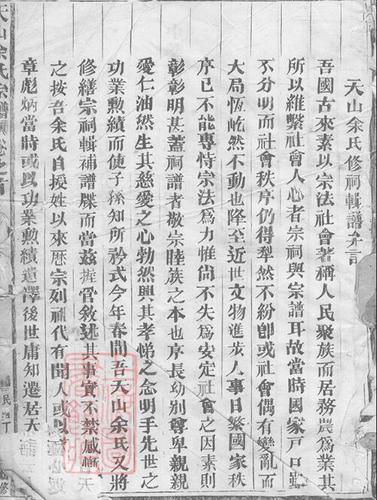 天山余氏修祠輯譜弁言
吾國古來素以宗法社會著稱人民聚族而居務農為業其
所以維繫社會人心者宗祠與宗譜耳故當時國家戶口
不分明而社會秩序仍得犁然不紛卽或社會偶有變亂而
大局恆屹然不動也降至近世文物進步人事日繁國家秩
序已不能專恃宗法為力雖尚不失為安定社會之因素則
彰彰明甚蓋祠譜者敬宗睦族之本也序長幼別尊卑親親
愛仁油然生其慈愛之心勃然興其孝悌之念明乎先世之
功業勲績而使子孫知所矜式今年春間吾天山余氏又將
修繕宗祠輯補譜牒而當茲握管敘述其事實不禁感
之按吾余氏自授姓以來歷宗列祖代有聞人或以
章彪炳當時或以功業勲績遺澤後世庸知遷居天
天山余氏宗譜
民國